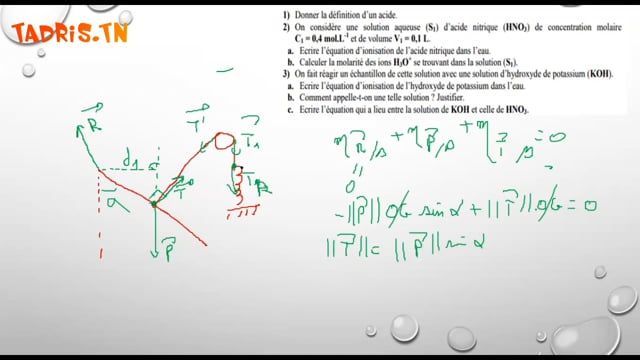 TADRIS.TN
1) Donner la définition d'un acide.
2) On considère une solution aqueuse (S₁) d'acide nitrique (HNO₃) de concentration molaire
C₁ = 0,4 mol.L⁻¹ et de volume V₁ = 0,1 L.
a. Ecrire l'équation d'ionisation de l'acide nitrique dans l'eau.
b. Calculer la molarité des ions H₃O⁺ se trouvant dans la solution (S₁).
3) On fait réagir un échantillon de cette solution avec une solution d'hydroxyde de potassium (KOH).
a. Ecrire l'équation d'ionisation de l'hydroxyde de potassium dans l'eau.
b. Comment appelle-t-on une telle solution ? Justifier.
c. Ecrire l'équation qui a lieu entre la solution de KOH et celle de HNO₃.
R⃗
d₁
T⃗'
T⃗₁
T⃗
P⃗
α
𝓜 R⃗/Δ + 𝓜 P⃗/Δ + 𝓜 T⃗/Δ = 0
"
0
-||P⃗|| OG sin α + ||T⃗|| OG = 0
||T⃗|| = ||P⃗|| sin α